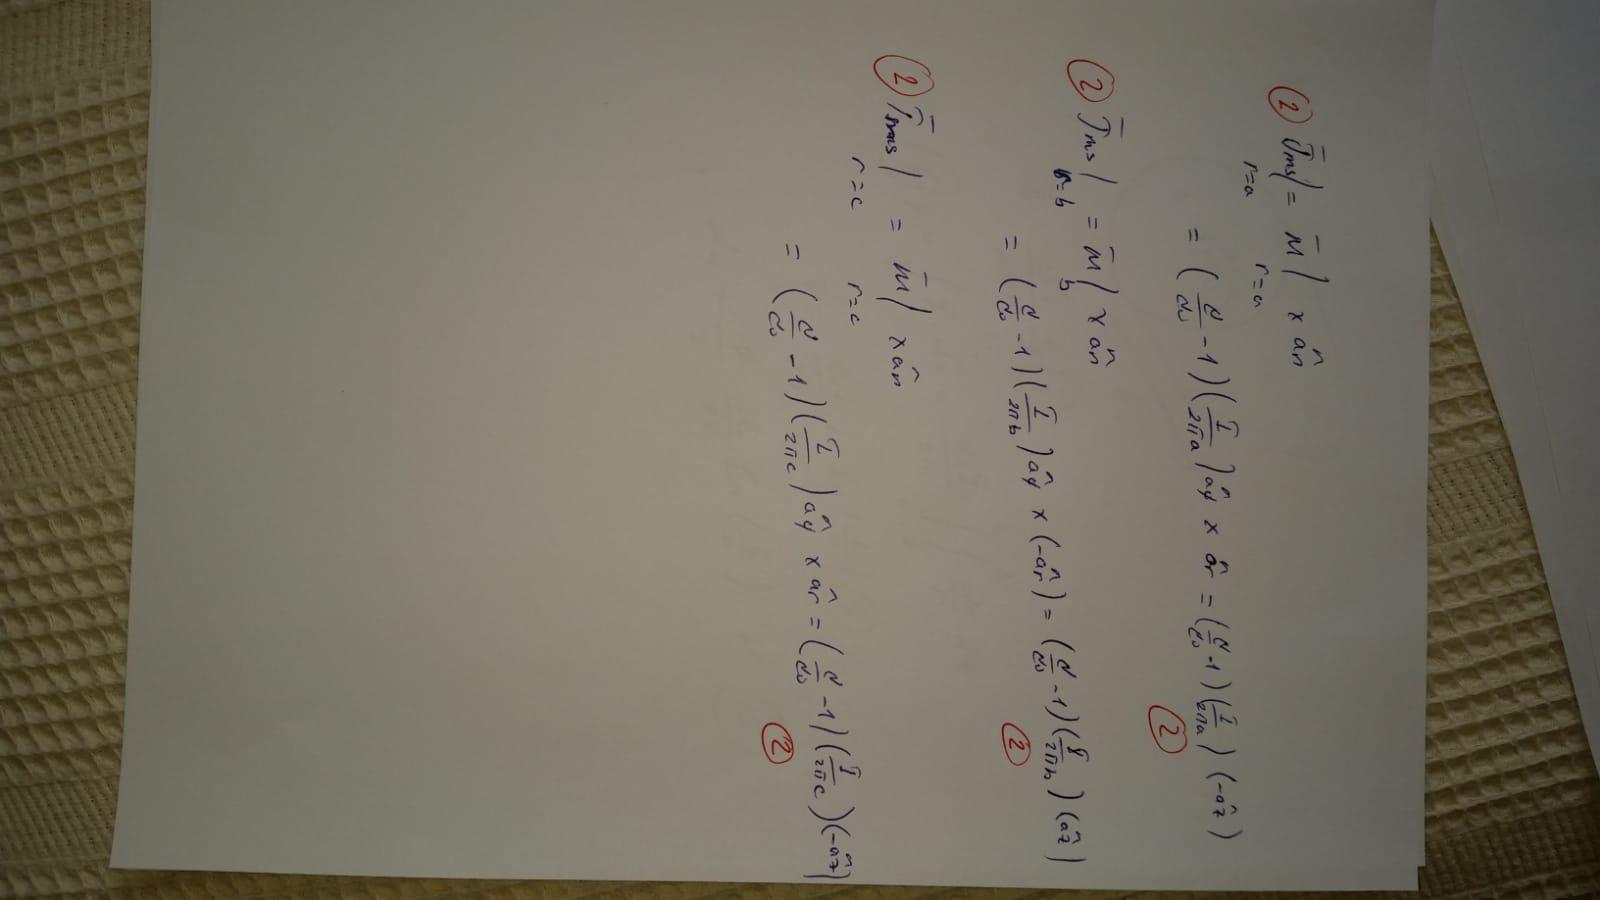 ② J̄ms| r=a = M̄| r=a × ân
= (μ/μ₀ - 1)(I/2πa) âφ × âr = (μ/μ₀ - 1)(I/2πa)(-âz)
②
② J̄ms| r=b = M̄| b × ân
= (μ/μ₀ - 1)(I/2πb) âφ × (-âr) = (μ/μ₀ - 1)(I/2πb)(âz)
②
② J̄ms| r=c = M̄| r=c × ân
= (μ/μ₀ - 1)(I/2πc) âφ × âr = (μ/μ₀ - 1)(I/2πc)(-âz)
②